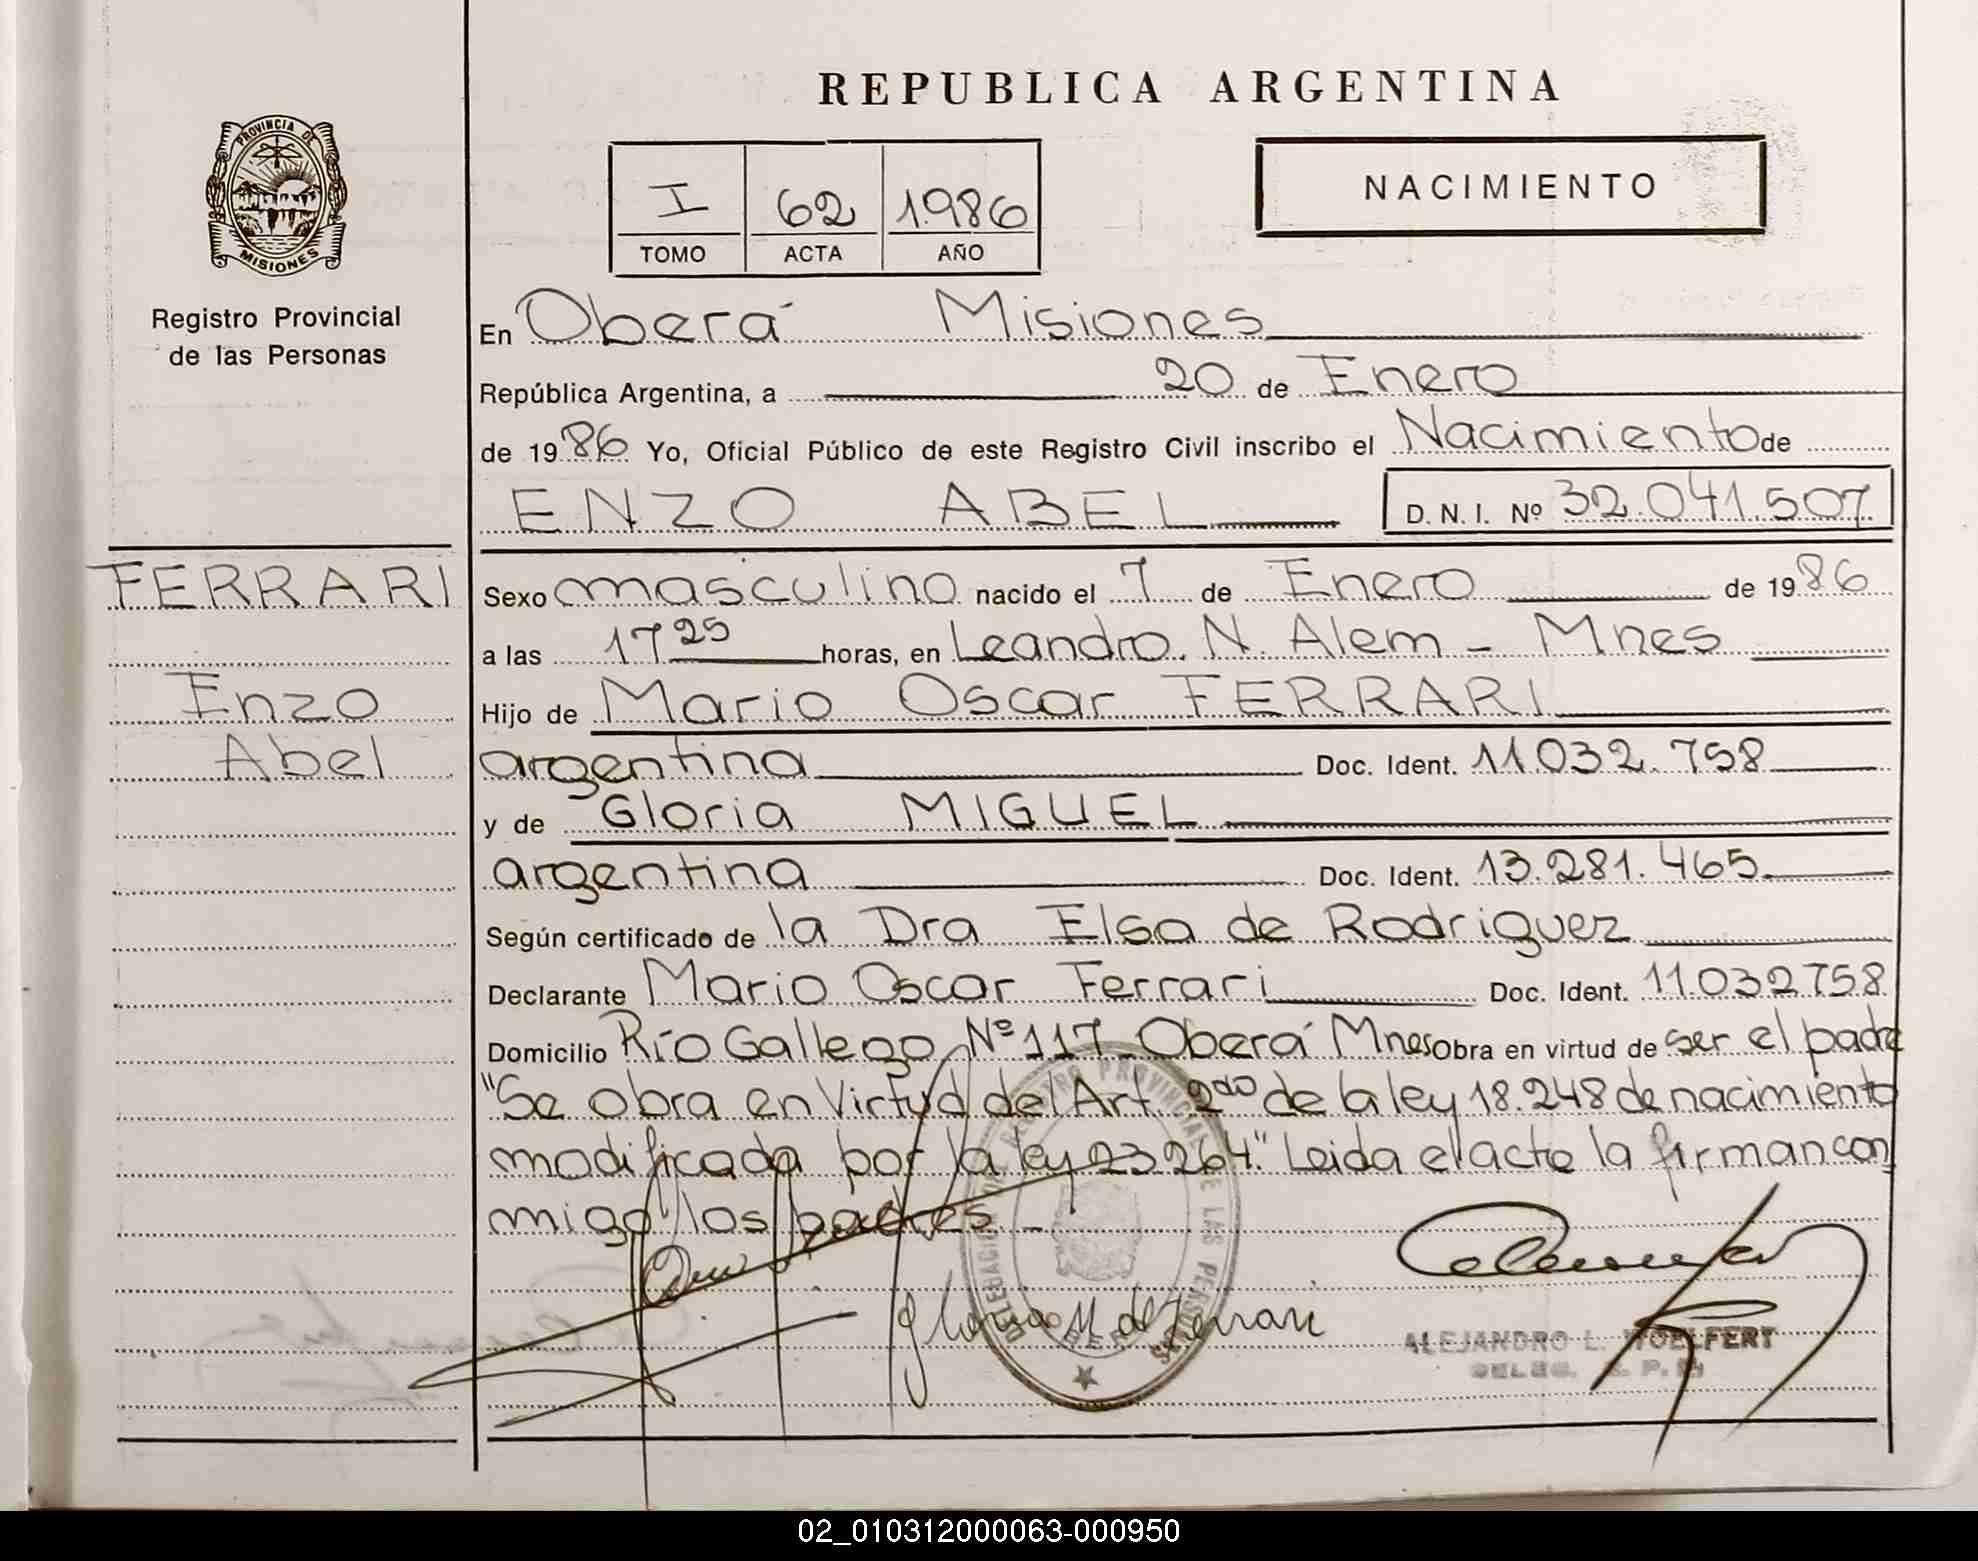 REPUBLICA ARGENTINA
PROVINCIA DE
MISIONES
Registro Provincial
de las Personas
I 62 1986
TOMO ACTA AÑO
NACIMIENTO
En Oberá Misiones
República Argentina, a 20 de Enero
de 1986 Yo, Oficial Público de este Registro Civil inscribo el Nacimiento de
ENZO ABEL D. N. I. Nº 32.041.507
FERRARI
Enzo
Abel
Sexo masculino nacido el 7 de Enero de 1986
a las 17 25 horas, en Leandro. N. Alem - Mnes
Hijo de Mario Oscar FERRARI
argentina Doc. Ident. 11.032.758
y de Gloria MIGUEL
argentina Doc. Ident. 13.281.465
Según certificado de la Dra Elsa de Rodriguez
Declarante Mario Oscar Ferrari Doc. Ident. 11.032758
Domicilio Río Gallego Nº 117 - Oberá Mnes Obra en virtud de ser el padre
"Se obra en Virtud del Art 2do de la ley 18.248 de nacimiento
modificada por la ley 23264." Leida el acta la firman con
migo los padres -
Gloria M de Ferrari
DELEGACION DEL REGISTRO PROVINCIAL DE LAS PERSONAS
ALEJANDRO L. WOELFERT
02_010312000063-000950